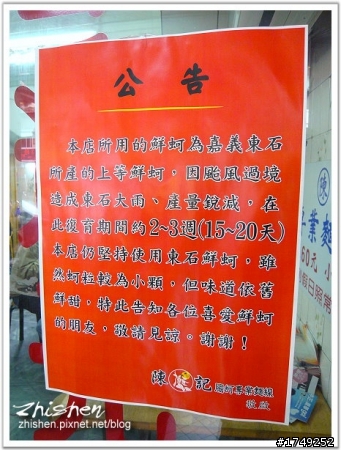 公告
本店所用的鮮蚵為嘉義東石
所產的上等鮮蚵，因颱風過境
造成東石大雨、產量銳減，在
此復育期間約2~3週(15~20天)
本店仍堅持使用東石鮮蚵，雖
然蚵粒較為小顆，但味道依舊
鮮甜，特此告知各位喜愛鮮蚵
的朋友，敬請見諒。謝謝！
陳記
專業麵線
敬啟
陳
專業麵
60元 小
假日照常
zhishen
zhishen.pixnet.net/blog
#1749252